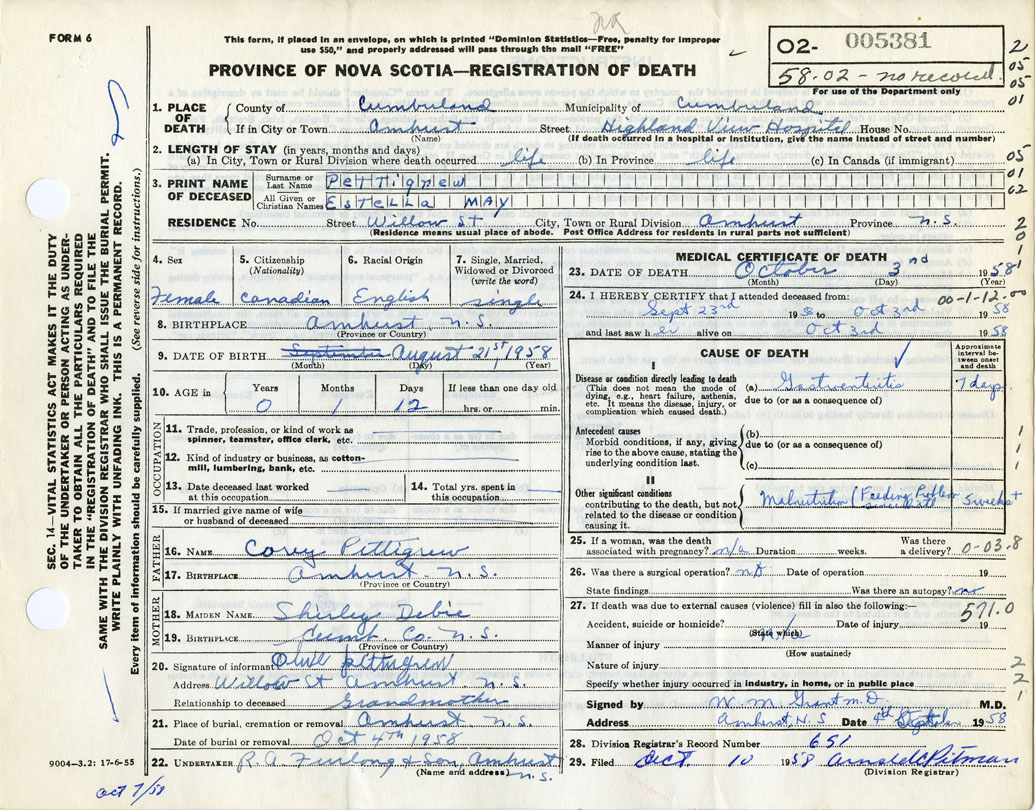 FORM 6
This form, if placed in an envelope, on which is printed "Dominion Statistics—Free, penalty for improper
use $50," and properly addressed will pass through the mail "FREE"
PROVINCE OF NOVA SCOTIA—REGISTRATION OF DEATH
02- 005381
58-02 - no record.
For use of the Department only
1. PLACE OF DEATH
County of Cumberland Municipality of Cumberland
If in City or Town Amhurst Street Highland View Hospital House No.
(Name) (If death occurred in a hospital or institution, give the name instead of street and number)
2. LENGTH OF STAY (in years, months and days)
(a) In City, Town or Rural Division where death occurred life (b) In Province life (c) In Canada (if immigrant)
3. PRINT NAME OF DECEASED
Surname or Last Name Pettigrew
All Given or Christian Names Estella May
RESIDENCE No. Street Willow St City, Town or Rural Division Amhurst Province N.S.
(Residence means usual place of abode. Post Office address for residents in rural parts not sufficient)
4. Sex Female
5. Citizenship (Nationality) Canadian
6. Racial Origin English
7. Single, Married, Widowed or Divorced (write the word) single
8. BIRTHPLACE Amhurst N.S.
(Province or Country)
9. DATE OF BIRTH September August 21st, 1958
(Month) (Day) (Year)
10. AGE in Years 0 Months 1 Days 12 If less than one day old hrs. or min.
OCCUPATION
11. Trade, profession, or kind of work as spinner, teamster, office clerk, etc.
12. Kind of industry or business, as cotton-mill, lumbering, bank, etc.
13. Date deceased last worked at this occupation
14. Total yrs. spent in this occupation
15. If married give name of wife or husband of deceased
FATHER
16. NAME Corey Pettigrew
17. BIRTHPLACE Amhurst N.S.
(Province or Country)
MOTHER
18. MAIDEN NAME Shirley Debie
19. BIRTHPLACE Cumb. Co. N.S.
(Province or Country)
20. Signature of informant Olive Pettigrew
Address Willow St Amhurst N.S.
Relationship to deceased Grandmother
21. Place of burial, cremation or removal Amhurst N.S.
Date of burial or removal Oct 4th 1958
22. UNDERTAKER R.A. Furlong & Son, Amhurst
(Name and address) N.S.
MEDICAL CERTIFICATE OF DEATH
23. DATE OF DEATH October 3nd 1958
(Month) (Day) (Year)
24. I HEREBY CERTIFY that I attended deceased from: 00-1-12.00
Sept 23rd 1958 to Oct 3rd 1958
and last saw her alive on Oct 3rd 1958
CAUSE OF DEATH
Approximate interval between onset and death
I
Disease or condition directly leading to death
(This does not mean the mode of dying, e.g., heart failure, asthenia, etc. It means the disease, injury, or complication which caused death.)
(a) Gastroenteritis 7 days
due to (or as a consequence of)
Antecedent causes
Morbid conditions, if any, giving rise to the above cause, stating the underlying condition last.
(b)
due to (or as a consequence of)
(c)
II
Other significant conditions
contributing to the death, but not related to the disease or condition causing it.
Malnutrition (Feeding Problem since birth) 5 weeks +
25. If a woman, was the death associated with pregnancy? n/a Duration weeks. Was there a delivery? 0-03.8
26. Was there a surgical operation? no Date of operation 19
State findings Was there an autopsy? no
27. If death was due to external causes (violence) fill in also the following:— 571.0
Accident, suicide or homicide? n/a Date of injury 19
(State which)
Manner of injury
(How sustained)
Nature of injury
Specify whether injury occurred in industry, in home, or in public place
Signed by W. M. Grant M.D. M.D.
Address Amhurst, N.S Date 4th 1958
28. Division Registrar's Record Number 651
29. Filed Oct. 10 1958 Arnold C Pitman
(Division Registrar)
SEC. 14—VITAL STATISTICS ACT MAKES IT THE DUTY
OF THE UNDERTAKER OR PERSON ACTING AS UNDER-
TAKER TO OBTAIN ALL THE PARTICULARS REQUIRED
IN THE "REGISTRATION OF DEATH" AND TO FILE THE
SAME WITH THE DIVISION REGISTRAR WHO SHALL ISSUE THE BURIAL PERMIT.
WRITE PLAINLY WITH UNFADING INK. THIS IS A PERMANENT RECORD.
Every item of information should be carefully supplied. (See reverse side for instructions.)
9004—3.2: 17-6-55
Oct 7/58
2
05
05
01
05
01
02
2
0
0
1
1
1
1
2
2
1